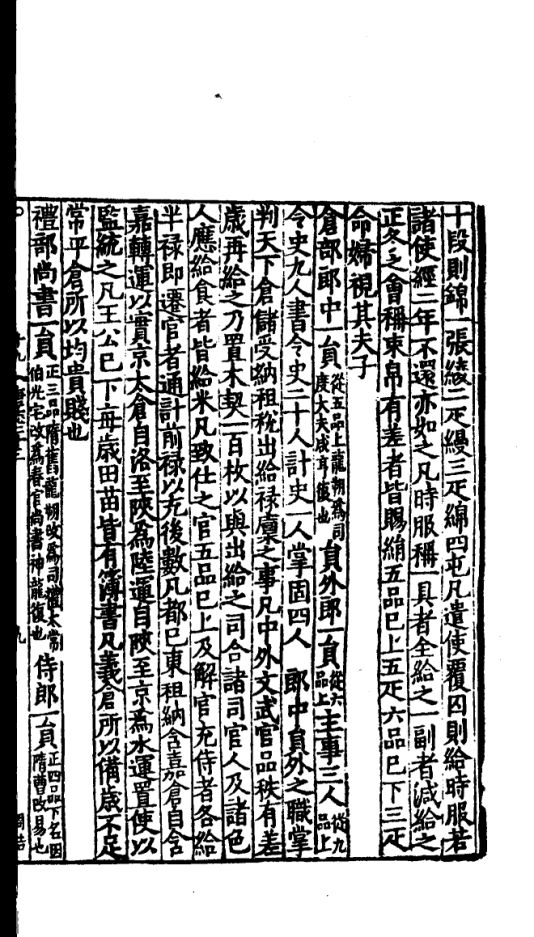 十段則錦一張綾二疋縵三疋綿四屯凡遣使覆囚則給時服若
諸使經二年不還亦如之凡時服稱一具者全給之一副者減給之
正冬之會稱束帛有差者皆賜絹五品已上五疋六品已下三疋
命婦視其夫子
倉部郎中一員從五品上龍朔為司度大夫咸亨復也員外郎一員從六品上主事三人從九品上
令史九人書令史二十人計史一人掌固四人郎中員外之職掌
判天下倉儲受納租稅出給祿廩之事凡中外文武官品秩有差
歲再給之乃置木契一百枚以與出給之司合諸司官人及諸色
人應給食者皆給米凡致仕之官五品已上及解官充侍者各給
半祿即遷官者通計前祿以充後數凡都已東租納含嘉倉自含
嘉轉運以實京太倉自洛至陝為陸運自陝至京為水運置使以
監統之凡王公已下每歲田苗皆有簿書凡義倉所以備歲不足
常平倉所以均貴賤也
禮部尚書一員正三品隋舊龍朔改為司禮太常伯光宅改為春官尚書神龍復也侍郎一員正四品下名因隋曹改易也